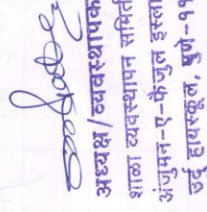 अध्यक्ष/व्यवस्थापक
शाळा व्यवस्थापन समिती
अंजुमन-ए-फैजुल इस्लाम
उर्दू हायस्कूल, पुणे-११